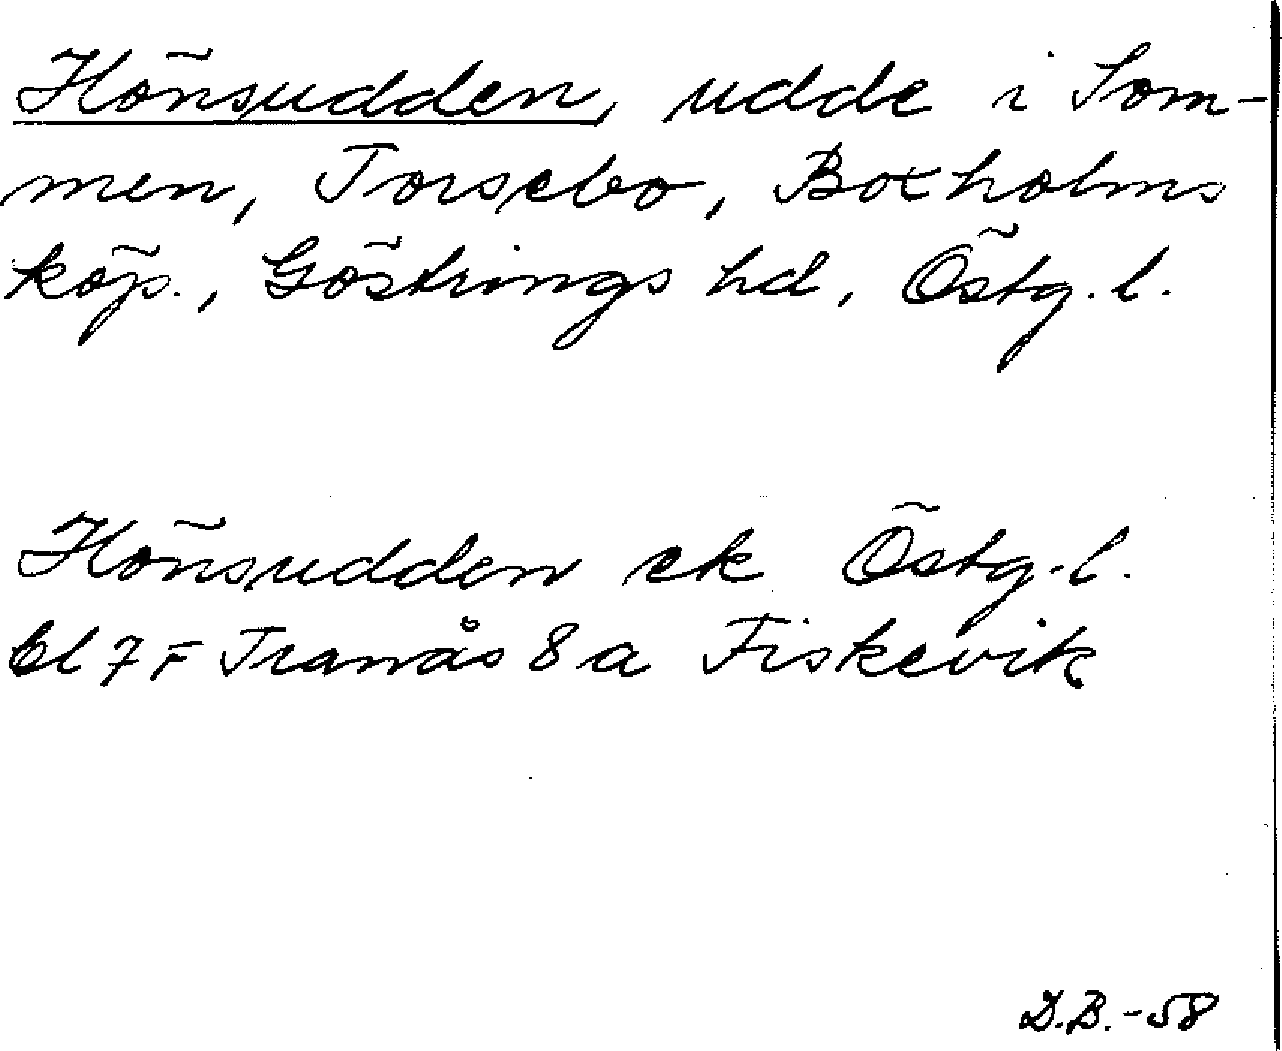 Hönsudden, udde i Som-
men, Torsebo, Boxholms
köp., Göstrings hd, Östg. l.
Hönsudden ek Östg. l.
bl 7 F Tranås 8 a Fiskevik
D.B.-58